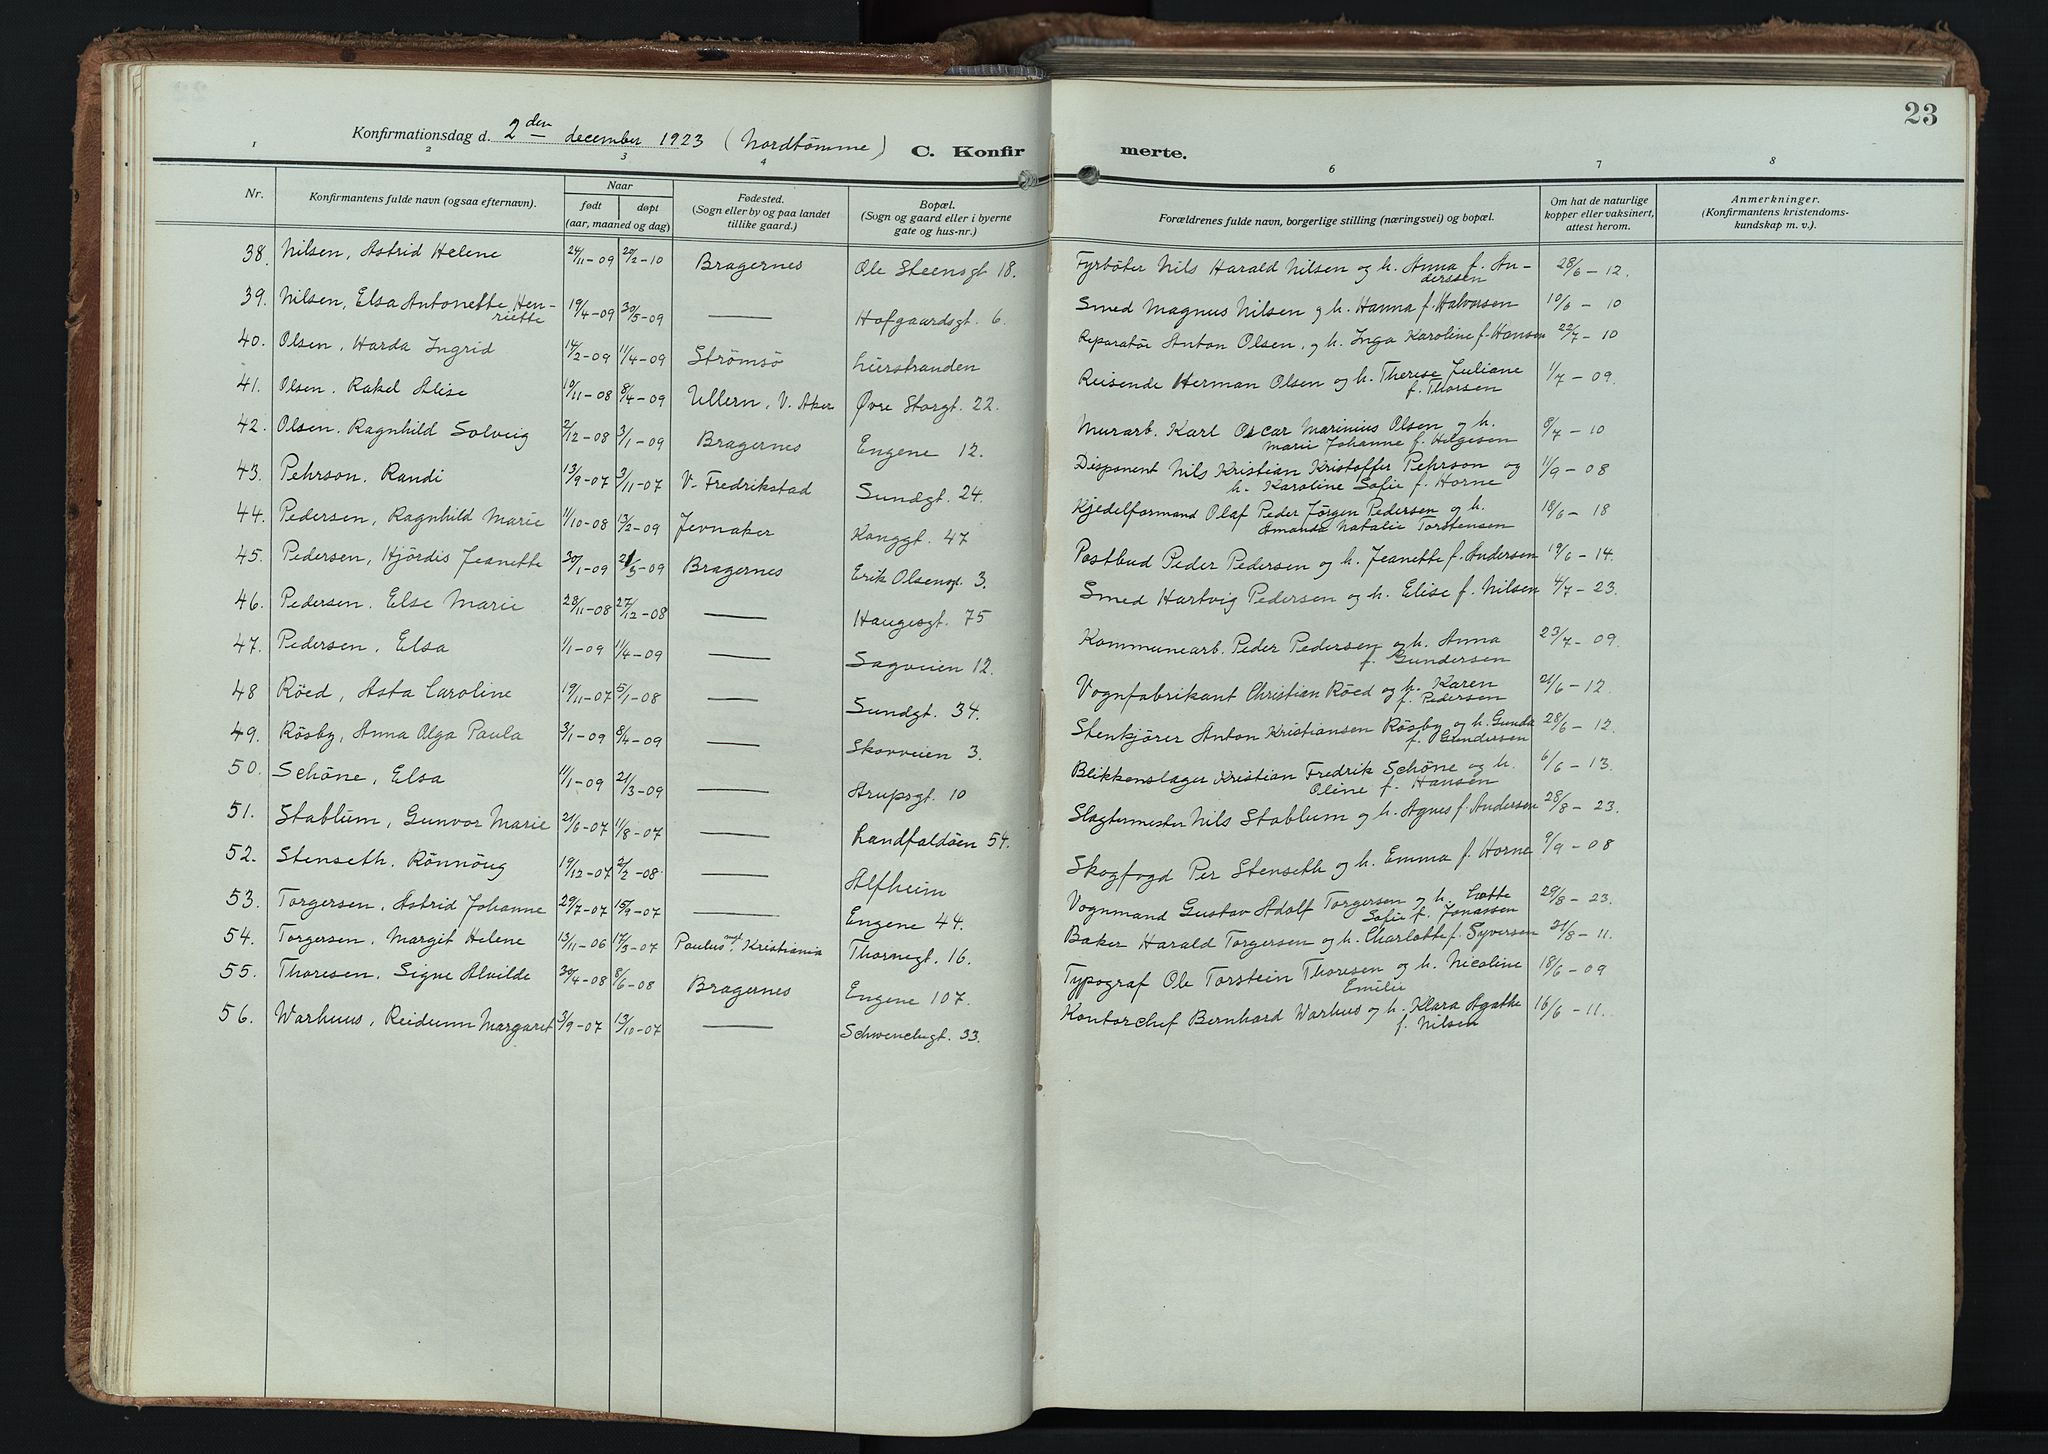 23
Konfirmationsdag d. 2den december 1923 (Nordtømme) C. Konfirmerte.
1 2 3 4 6 7 8
Nr. Konfirmantens fulde navn (ogsaa efternavn). Naar født døpt (aar, maaned og dag) Fødested. (Sogn eller by og paa landet tillike gaard.) Bopæl. (Sogn og gaard eller i byerne gate og hus-nr.) Forældrenes fulde navn, borgerlige stilling (næringsvei) og bopæl. Om hat de naturlige kopper eller vaksinert, attest herom. Anmerkninger. (Konfirmantens kristendomskundskap m. v.).
38. Nilsen, Astrid Helene 24/11-09 20/2-10 Bragernes Ole Steensgt 18. Fyrbøter Nils Harald Nilsen og h. Anna f. Anderssen 28/6-12.
39. Nilsen, Elsa Antonette Henriette 19/4-09 30/5-09 — Hofgaardsgt. 6. Smed Magnus Nilsen og h. Hanna f. Halvorsen 10/6-10
40. Olsen, Harda Ingrid 14/2-09 11/4-09 Strømsø Lierstranden Reparatør Anton Olsen, og h. Inga Karoline f. Hansen 22/7-10
41. Olsen, Rakel Alise 10/11-08 8/4-09 Ullern, V. Aker Øvre Storgt. 22. Reisende Herman Olsen og h. Therese Juliane f. Thorsen 1/7-09.
42. Olsen. Ragnhild Solveig 2/12-08 3/1-09 Bragernes Engene 12. Murarb. Karl Oscar Marinius Olsen og h. Marie Johanne f. Helgesen 8/7-10
43. Pehrson, Randi 13/9-07 3/11-07 V. Fredrikstad Sundgt. 24. Disponent Nils Kristian Kristoffer Pehrson og h. Karoline Sofie f. Horne 11/9-08
44. Pedersen, Ragnhild Marie 11/10-08 13/2-09 Jevnaker Konggt. 47 Kjedelformand Olaf Peder Jørgen Pedersen og h. Amanda Natalie Torstensen 18/6-18
45. Pedersen, Hjördis Jeanette 30/1-09 21/5-09 Bragernes Erik Olsensgt. 3. Postbud Peder Pedersen og h. Jeanette f. Andersen 19/6-14.
46. Pedersen, Else Marie 28/11-08 27/12-08 — Haugesgt. 75 Smed Hartvig Pedersen og h. Elise f. Nilsen 4/7-23.
47. Pedersen, Elsa 1/1-09 11/4-09 — Sagveien 12. Kommunearb. Peder Pedersen og h. Anna f. Gundersen 23/7-09.
48 Röed, Asta Caroline 19/11-07 5/1-08 — Sundgt. 34. Vognfabrikant Christian Röed og h. Karen f. Pedersen 21/6-12.
49. Rösby, Anna Olga Paula 3/1-09 8/4-09 — Skovveien 3. Stenkjører Anton Kristiansen Rösby og h. Gunda f. Gundersen 28/6-12.
50. Schöne, Elsa 11/1-09 21/3-09 — Arupsgt. 10 Blikkenslager Kristian Fredrik Schöne og h. Oline f. Hansen 6/6-13.
51. Stablum, Gunvor Marie 21/6-07 11/8-07 — Landfaldöen 54. Slagtermester Nils Stablum og h. Agnes f. Andersen 28/8-23.
52. Stenseth, Rönnöug 19/12-07 2/2-08. — Alfheim Skogfogd Per Stenseth og h. Emma f. Horne 9/9-08
53. Torgersen, Astrid Johanne 29/7-07 15/9-07 — Engene 44. Vognmand Gustav Adolf Torgersen og h. Lotte Sofie f. Jonassen 29/8-23.
54. Torgersen, Margit Helene 13/11-06 17/3-07 Paulus mgt. Kristiania Thornegt. 16. Baker Harald Torgersen og h. Charlotte f. Syversen 31/8-11.
55. Thoresen, Signe Alvilde 30/4-08 8/6-08 Bragernes Engene 107. Typograf Ole Torstein Thoresen og h. Nicoline Emilie 18/6-09
56. Warhuus, Reidunn Margaret 3/9-07 13/10-07 — Schwenckegt. 33. Kontorchef Bernhard Warhus og h. Klara Agathe f. Nilsen 16/6-11.